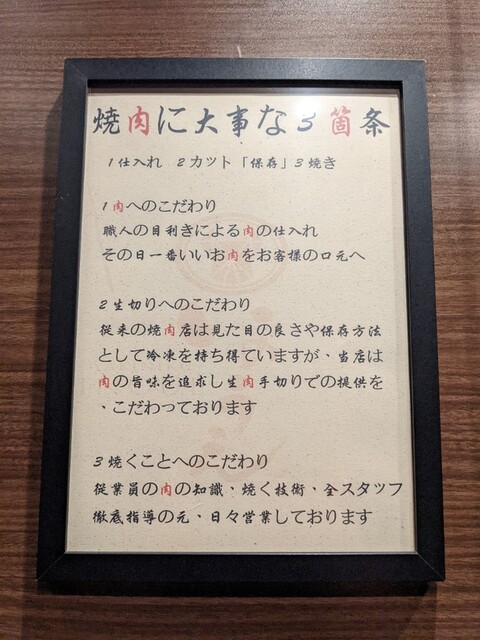 焼肉に大事な3箇条
1仕入れ 2カット「保存」3焼き
1肉へのこだわり
職人の目利きによる肉の仕入れ
その日一番いいお肉をお客様の口元へ
2生切りへのこだわり
従来の焼肉店は見た目の良さや保存方法
として冷凍を持ち得ていますが、当店は
肉の旨味を追求し生肉手切りでの提供を
、こだわっております
3焼くことへのこだわり
従業員の肉の知識、焼く技術、全スタッフ
徹底指導の元、日々営業しております